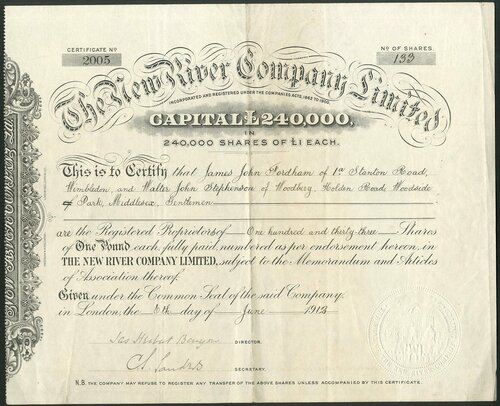 CERTIFICATE No
2005
No OF SHARES.
133
The New River Company Limited
INCORPORATED AND REGISTERED UNDER THE COMPANIES ACTS, 1862 TO 1900.
CAPITAL £240,000,
IN
240,000 SHARES OF £1 EACH.
This is to Certify that James John Fordham of 1a Stanton Road,
Wimbledon, and Walter John Stephenson of Woodberg, Holden Road, Woodside
Park, Middlesex, Gentlemen
are the Registered Proprietors of One hundred and thirty-three Shares
of One Pound each, fully paid, numbered as per endorsement hereon, in
THE NEW RIVER COMPANY LIMITED, subject to the Memorandum and Articles
of Association thereof.
Given under the Common Seal of the said Company,
in London, the day of June 1912
DIRECTOR.
SECRETARY.
N.B. THE COMPANY MAY REFUSE TO REGISTER ANY TRANSFER OF THE ABOVE SHARES UNLESS ACCOMPANIED BY THIS CERTIFICATE.